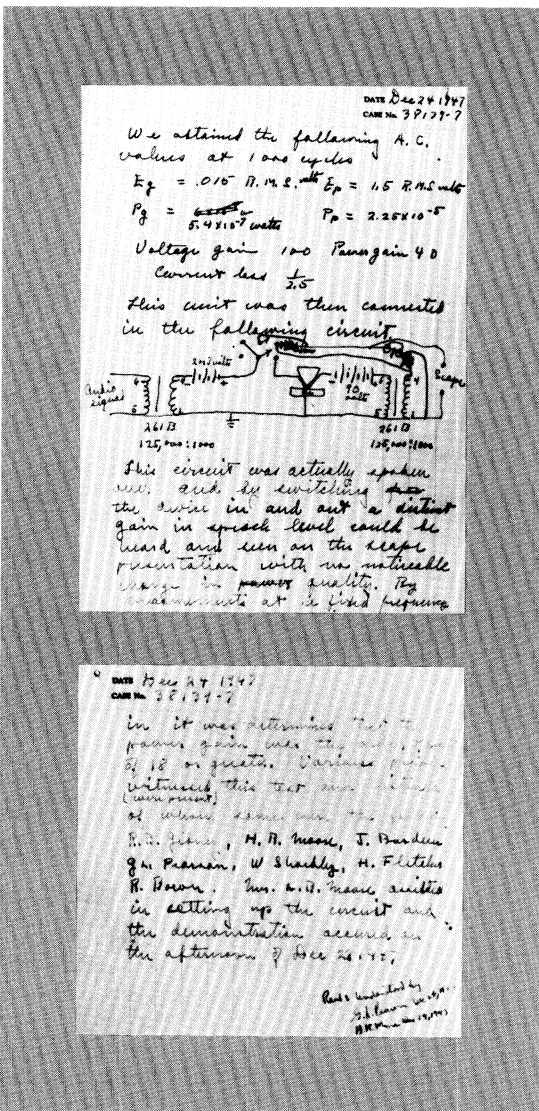 DATE Dec 24 1947
CASE No. 38139-7
We obtained the following A.C.
values at 1000 cycles
Eg = .015 R.M.S. volts Ep = 1.5 R.M.S volts
Pg = 5.4x10⁻⁷ watts Pp = 2.25x10⁻⁵
Voltage gain 100 Power gain 40
Current loss 1/2.5
This unit was then connected
in the following circuit
Audio signal
volts
90 volts
Scope
261B
125,000:1000
261B
125,000:1000
This circuit was actually spoken
over and by switching
the device in and out a distinct
gain in speech level could be
heard and seen on the scope
presentation with no noticeable
change in quality. By
measurements at a fixed frequency
DATE Dec 24 1947
CASE No. 38139-7
in it was determined that the
power gain was the order
of 18 or greater. Various people
witnessed this test and listened
of whom some were the
H. R. Moore, J. Bardeen
G.L. Pearson, W Shockley, H. Fletcher
R. Bown. Mr. H.R. Moore assisted
in setting up the circuit and
the demonstration occurred on
the afternoon of Dec 23
Read & Understood by
G.L. Pearson Dec
H.R. Moore Dec